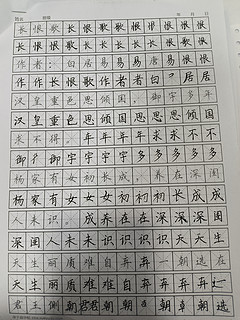 长恨歌长恨歌歌恨恨恨恨
长恨恨长恨歌长恨歌恨恨
作者:白居易易易唐易恨
作作长恨歌作者者白?居居
汉皇重色思倾国,御宇多年
汉皇重色思倾国思思思倾国
求不得。年年年年求求不不
御宇多多多多
杨家有女初长成,养在深闺
杨家有女女女初初长成成
人未识。成养在在深深深闺
深闺人未未识识识识天天生
天生丽质难自弃,一朝选在
天生丽质难自弃弃弃弃
君王侧朝君君朝朝朝选